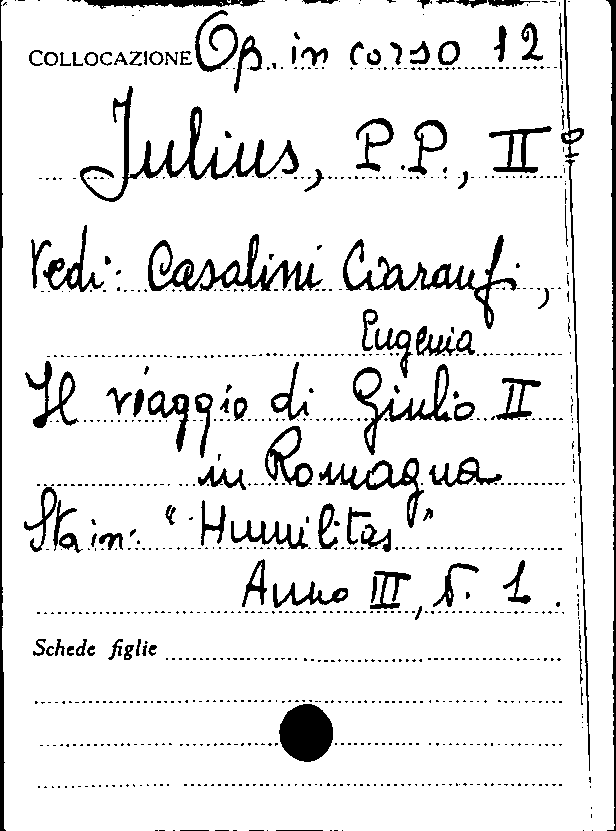 COLLOCAZIONE Op. in corso 12
Julius, P.P., IIº
Vedi: Casalini Ciaranfi,
Eugenia
Il viaggio di Giulio II
in Romagna
Sta in: "Humilitas"
Anno III, N. 1.
Schede figlie